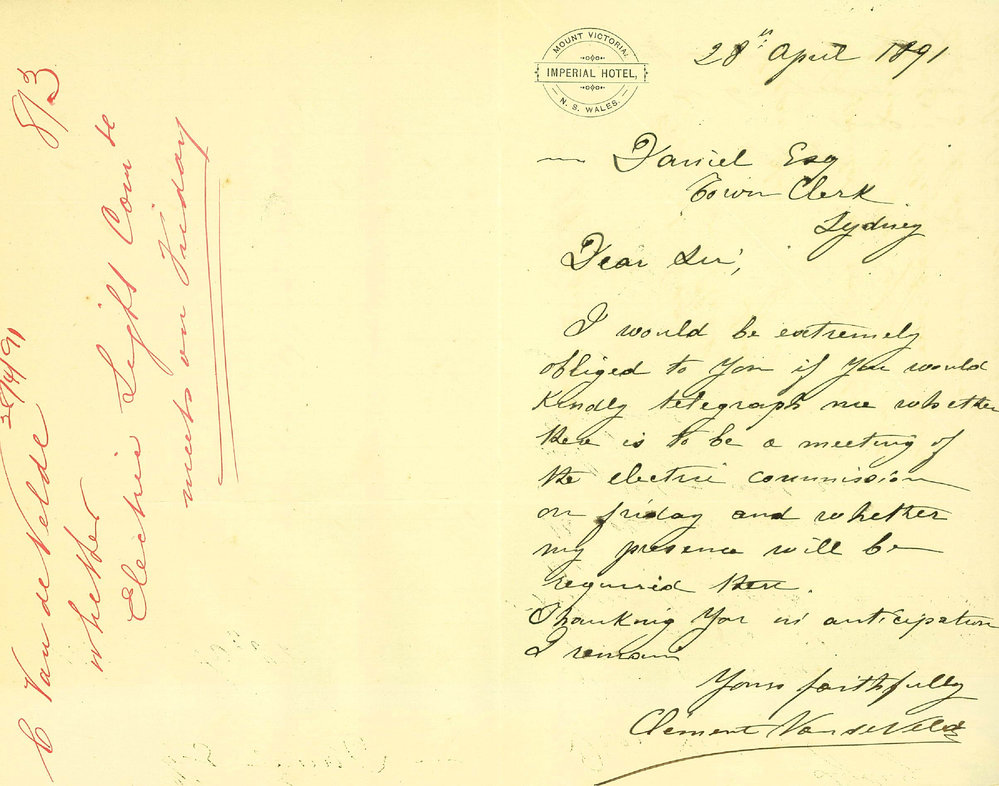 MOUNT VICTORIA,
IMPERIAL HOTEL,
N. S. WALES.
28th April 1891
Daniel Esq
Town Clerk
Sydney
Dear Sir,
I would be extremely
obliged to you if you would
Kindly telegraph me whether
there is to be a meeting of
the electric commission
on friday and whether
my presence will be
required there.
Thanking you in anticipation
I remain
Yours faithfully
Clément Van de Velde
813
28/4/91
C Van de Velde
whether
Electric Light Com de
meets on Friday